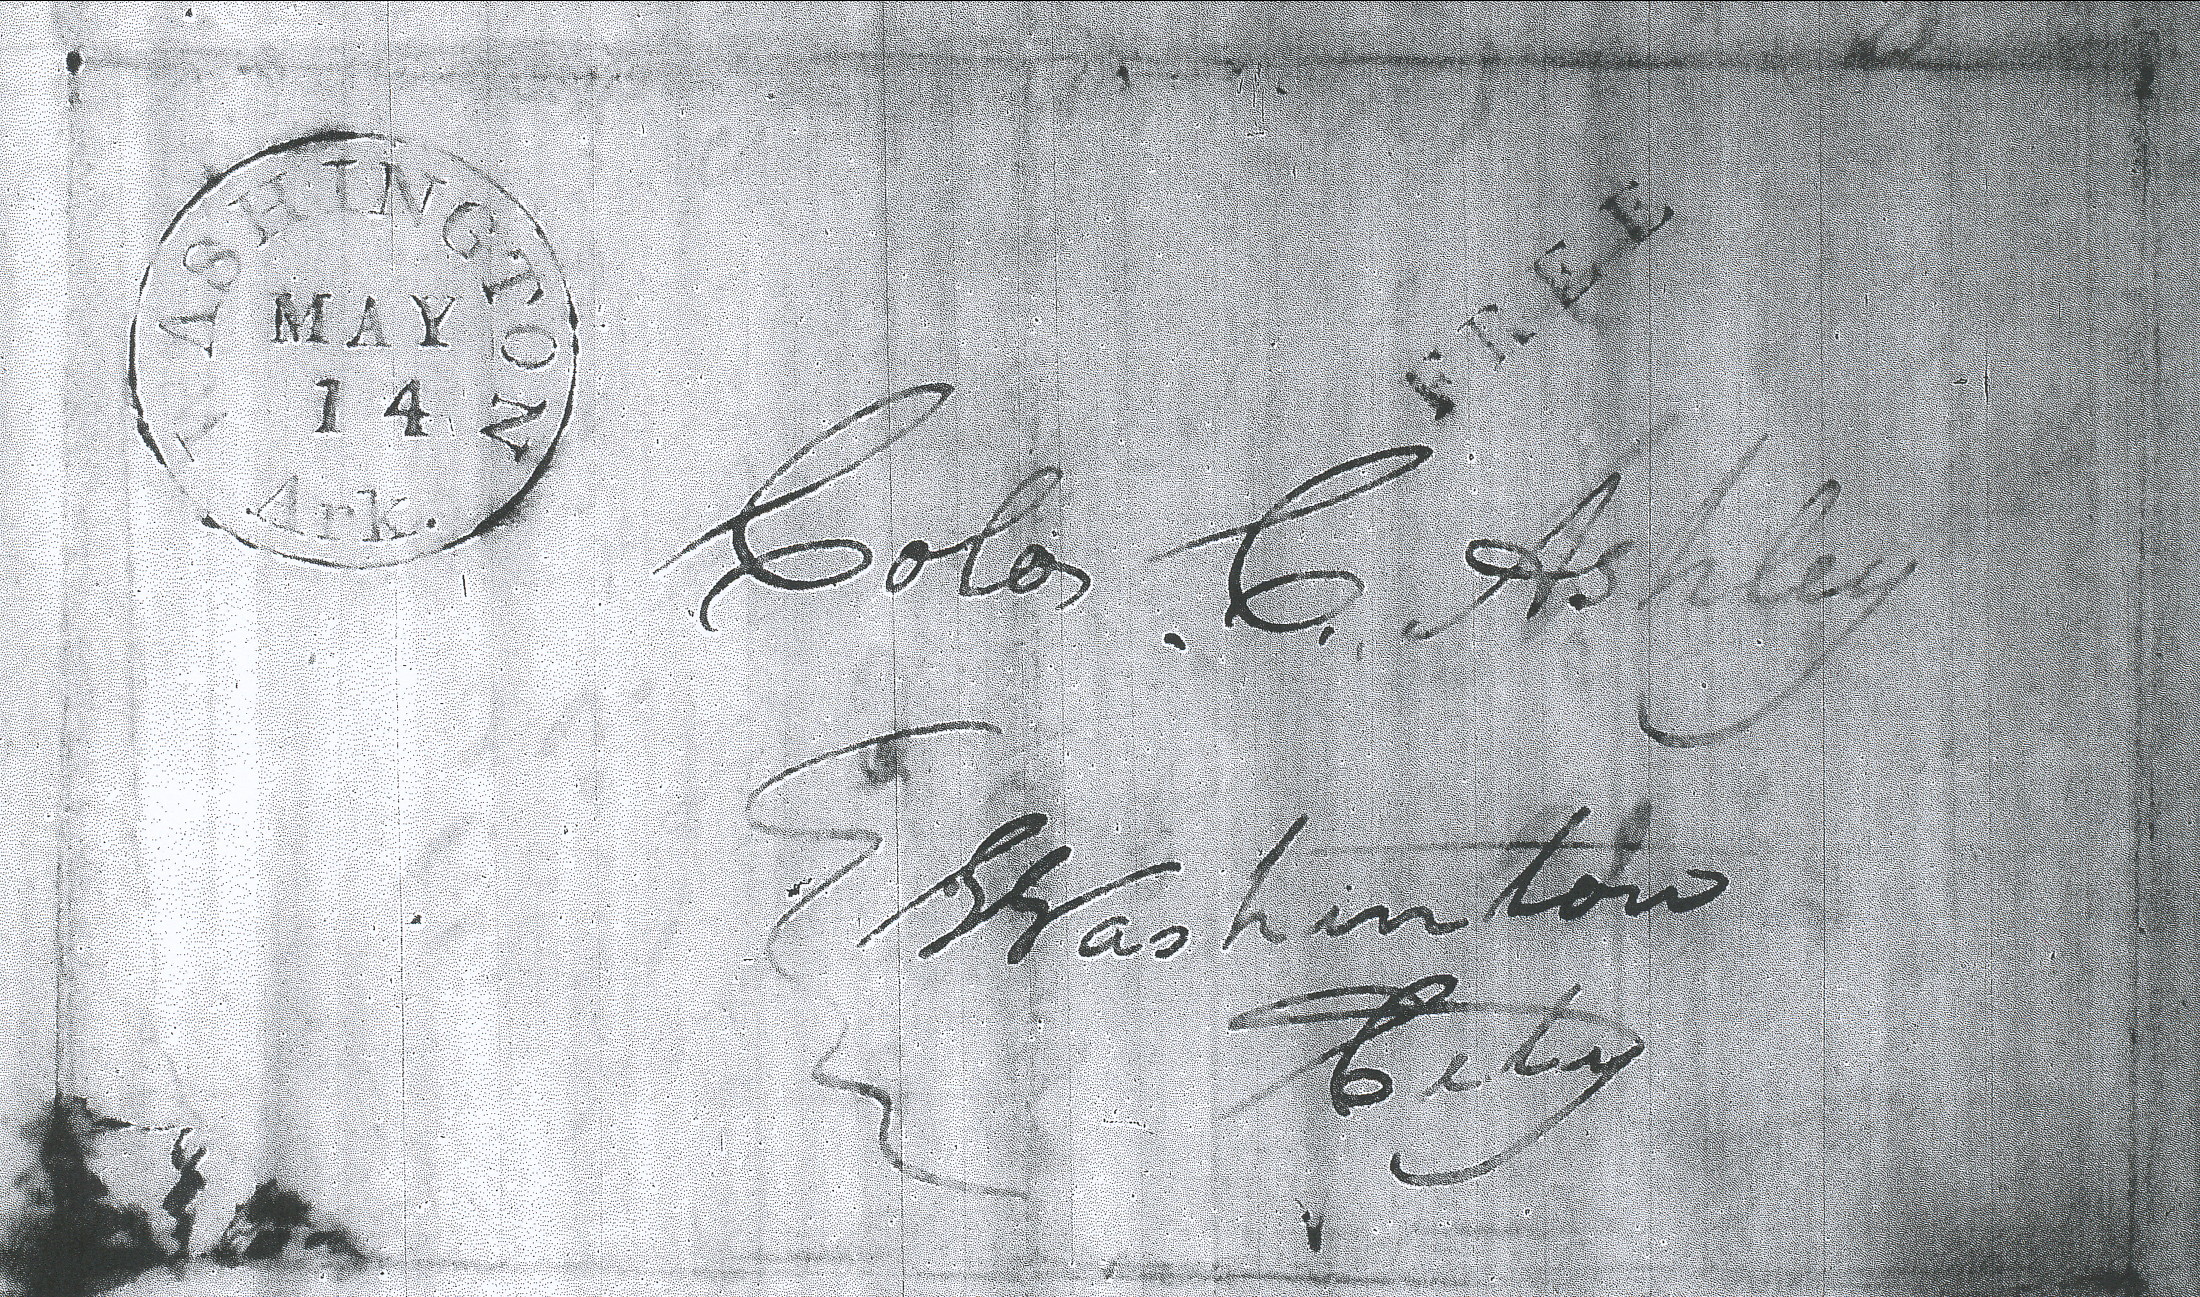 WASHINGTON
MAY
14
Ark.
FREE
Colo. C. Ashley
Washinton
City